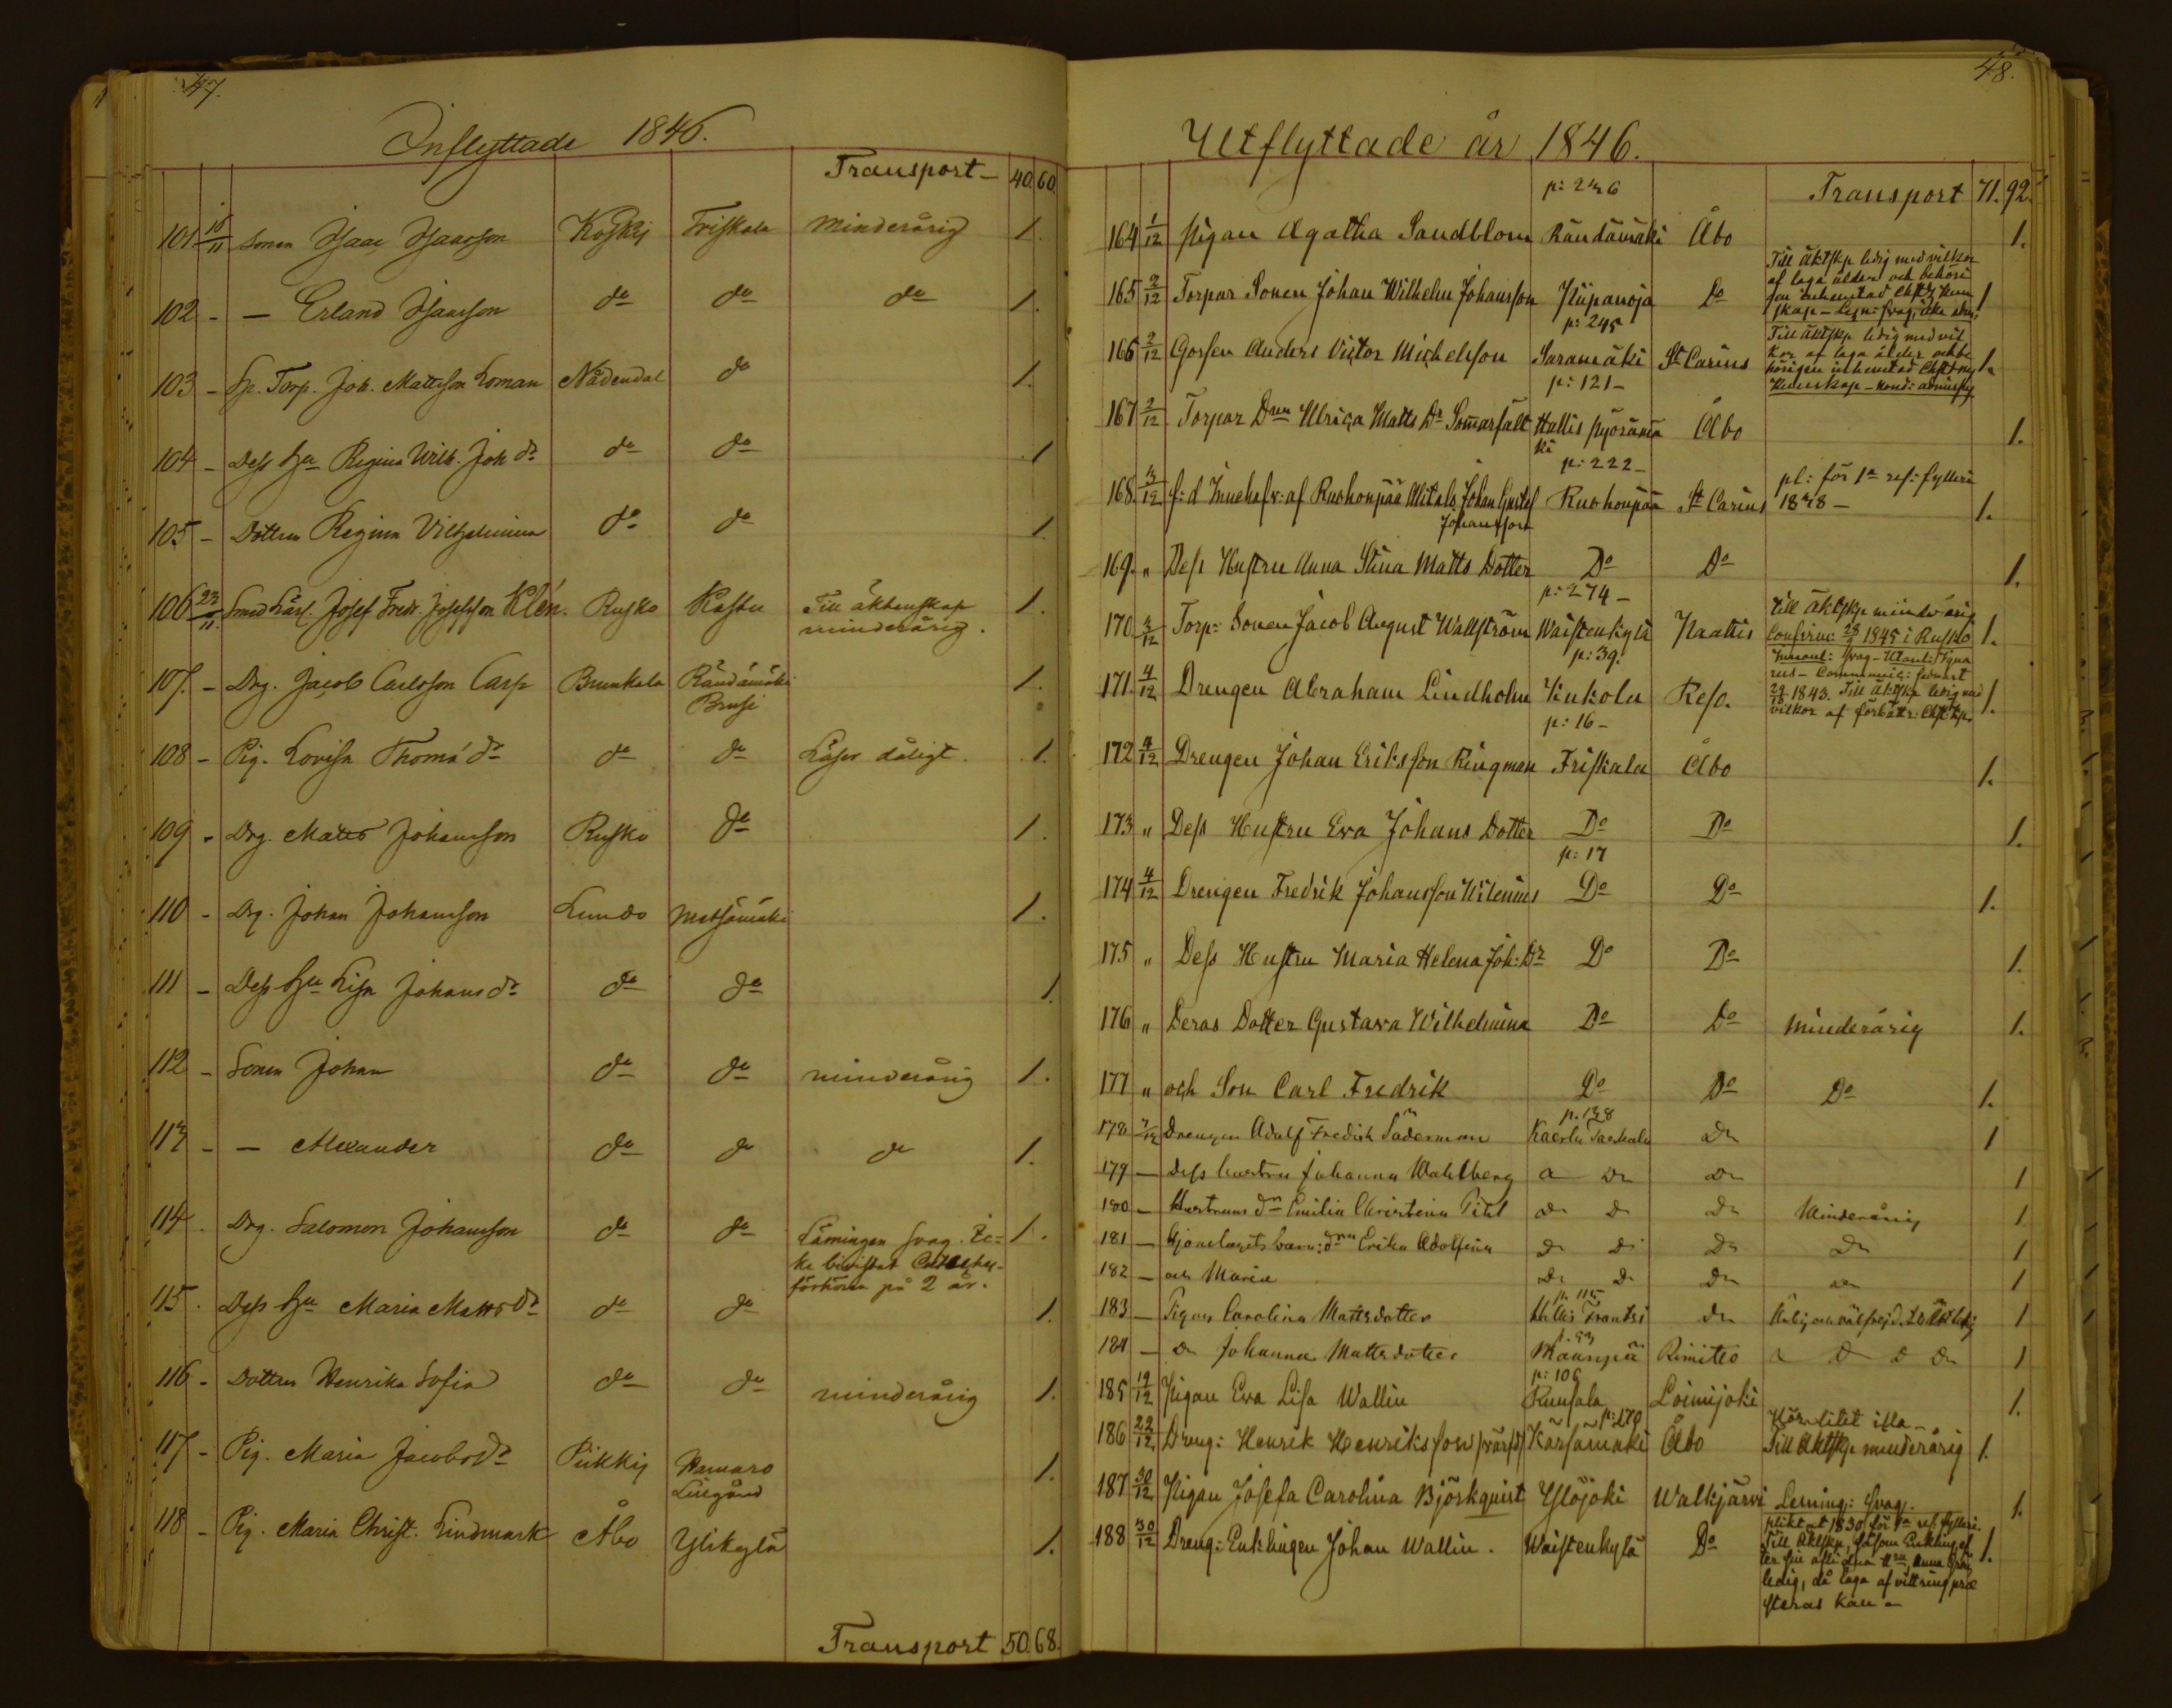 47.
Inflyttade 1846.
Transport - 40. 60.
101 16/11 Sonen Isaac Isaacsson Koskis Friskala Minderårig 1.
102 - — Erland Isaacsson do do do 1.
103 - Sp. Torp. Joh. Mattsson Loman Nådendal do 1.
104 - Dess Hu Regina Wilh. Joh dr do do 1
105 - Dottren Regina Vilhelmina do do 1.
106 23/11 Smed Lärl. Josef Fredr. Josefsson Klén. Rusko Kastu Till äktenskap 1.
minderårig.
107. - Drg. Jacob Carlsson Carp Brunkala Rändämäki 1.
Brusi
108 - Pig. Lovisa Thomæ dr do do Läser dåligt. 1.
109 - Drg. Matts Johansson Rusko do 1.
110 - Drg. Johan Johansson Lundo Metsämäki 1.
111 - Dess Hu Lisa Johans dr do do 1
112 - Sonen Johan do do minderårig 1.
113 - — Alexander do do do 1.
114. Drg. Salomon Johansson do do Läsningen svag. Ic= 1.
ke bivistat Catechес-
förhören på 2 år.
115. Dess Hu Maria Matts dr do do 1.
116 - Dottren Henrika Sofia do do minderårig 1.
117 - Pig. Maria Jacobs dr Piikkis Hamaro 1.
Lillgård
118 - Pig. Maria Christ. Lindmark Åbo Ylikylä 1.
Transport 50. 68.
48.
Utflyttade år 1846.
p: 246 Transport 71. 92.
164 1/12 Pigan Agatha Sandblom Rändämäki Åbo 1.
165 2/12 Torpar Sonen Johan Wilhelm Johansson Kupanoja Do Till äktskp ledig med vilkor
af laga ålder och behöri
gen inhemtad Chstds kun 1
skap -
p: 245
166 2/12 Gossen Anders Victor Michelsson Saramäki St Carins Till äktskp ledig med vil
kor af laga ålder och be
hörigen inhemtad Chstdms 1.
kunskap -
p: 121 -
167 2/12 Torpar Dren Ulrica Matts Dr Sommarfält Hallis pyörämä Åbo 1.
ki
p: 222 -
168. 3/12 f: d Innehafv: af Ruohonpää Alitalo Johan Gustaf Ruohonpää St Carins pl: för 1a res: fylleri
Johansson 1838 - 1.
169. „ Dess Hustru Anna Stina Matts Dotter Do Do 1.
p: 274 -
170 3/12 Torp: Sonen Jacob August Wallström Waistenkylä Naattis Till äktskp minderårig
Confirm: 28/9 1845 i Rusko 1.
p: 39.
171. 4/12 Drengen Abraham Lindholm Kukola Reso. Innant: svag - Utant:
rus - Communic: sednast
24/10 1843. Till äktskp ledig med
vilkor af förbättr: Chst:skp. 1.
p: 16 -
172 4/12 Drengen Johan Eriksson Ringman Friskala Åbo 1.
173 „ Dess Hustru Eva Johans Dotter Do Do 1.
p: 17
174 4/12 Drengen Fredrik Johansson Wilenius Do Do 1.
175 „ Dess Hustru Maria Helena Joh: Dr Do Do 1.
176 „ Deras Dotter Gustava Wilhelmina Do Do Minderårig 1.
177 „ och Son Carl Fredrik Do Do Do 1.
p. 138
178 7/12 Drengen Adolf Fredrik Söderman Kaerla Do 1
179 — Dess hustru Johanna Wahlberg Do Do Do 1
180 — Hustruns dr Emilia Christina Do Do Do Minderårig 1
181 — Hjonelagets barn: drn Erika Adolfina Do Do Do Do 1
182 — och Maria Do Do Do Do 1
p. 115
183 — Pigan Carolina Mattsdotter Hallis Frantsi Do Ärlig och välfrejd. 1
p. 93
184 — Do Johanna Mattsdotter Maunpä Rimitto Do Do Do 1
p: 106
185 19/12 Pigan Eva Lisa Wallin Runsala Loimijoki 1.
p: 170
186 22/12 Dreng: Henrik Henriksson Kärsämäki Åbo Hör litet illa -
Till Äktskp minderårig 1.
187 30/12 Pigan Josefa Carolina Björkquist Yläjoki Walkjärvi Lesning: svag. 1.
188 30/12 Dreng: Enklingen Johan Wallin. Waistenkylä Do pliktat 1830 för 1a res: fylleri.
Till äktskp, såsom Enkling ef
ter sin aflidna Hru Anna 1.
ledig, då laga afvittring præ
steras kan -